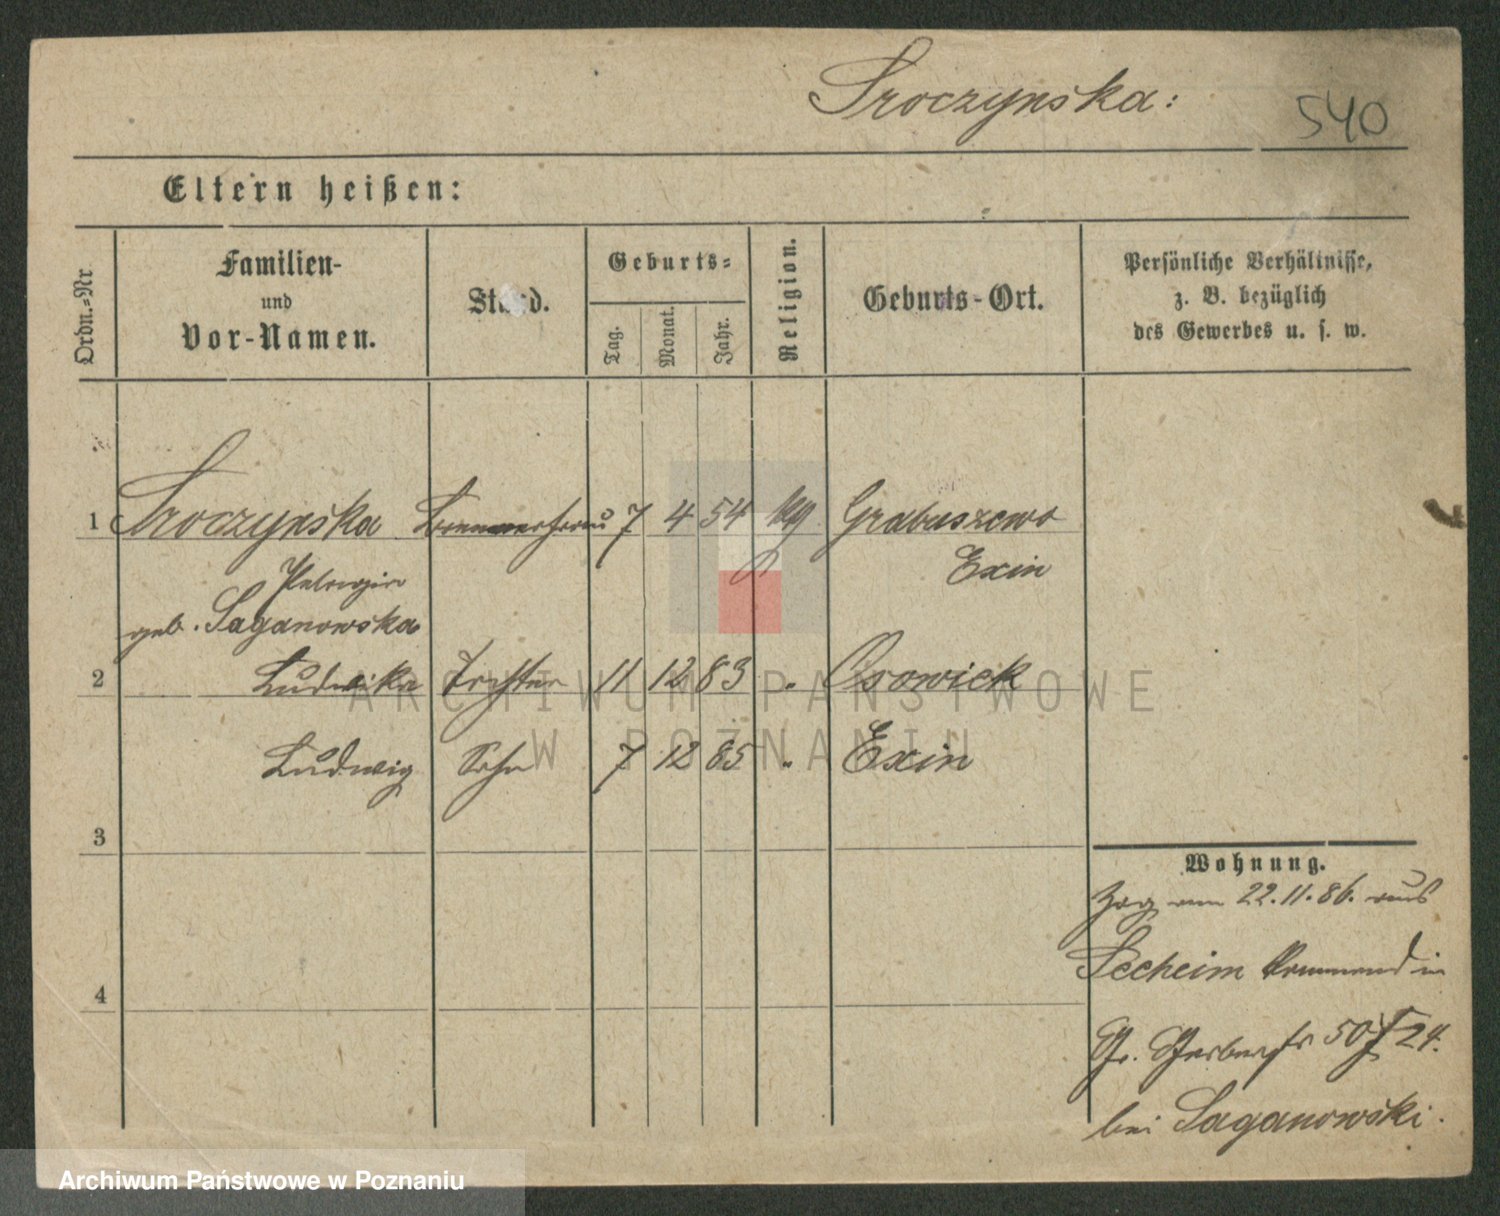 Sroczynska:
540
Eltern heißen:
Ordn.-Nr
Familien-
und
Vor-Namen.
Stand.
Geburts-
Tag.
Monat.
Jahr.
Religion.
Geburts-Ort.
Persönliche Verhältnisse,
z. B. bezüglich
des Gewerbes u. s. w.
1 Sroczynska 7 4 54 Grabuszewo
Exin
geb. Saganowska
2 Ludwika Tochter 11 12 83 " Osowieck
Ludwig Sohn 7 12 85 " Exin
3
4
Wohnung.
Zog am 22.11.86. aus
Seeheim kommend in
Gr. Gerberstr 50/24.
bei Saganowski.
ARCHIWUM PAŃSTWOWE
W POZNANIU
Archiwum Państwowe w Poznaniu